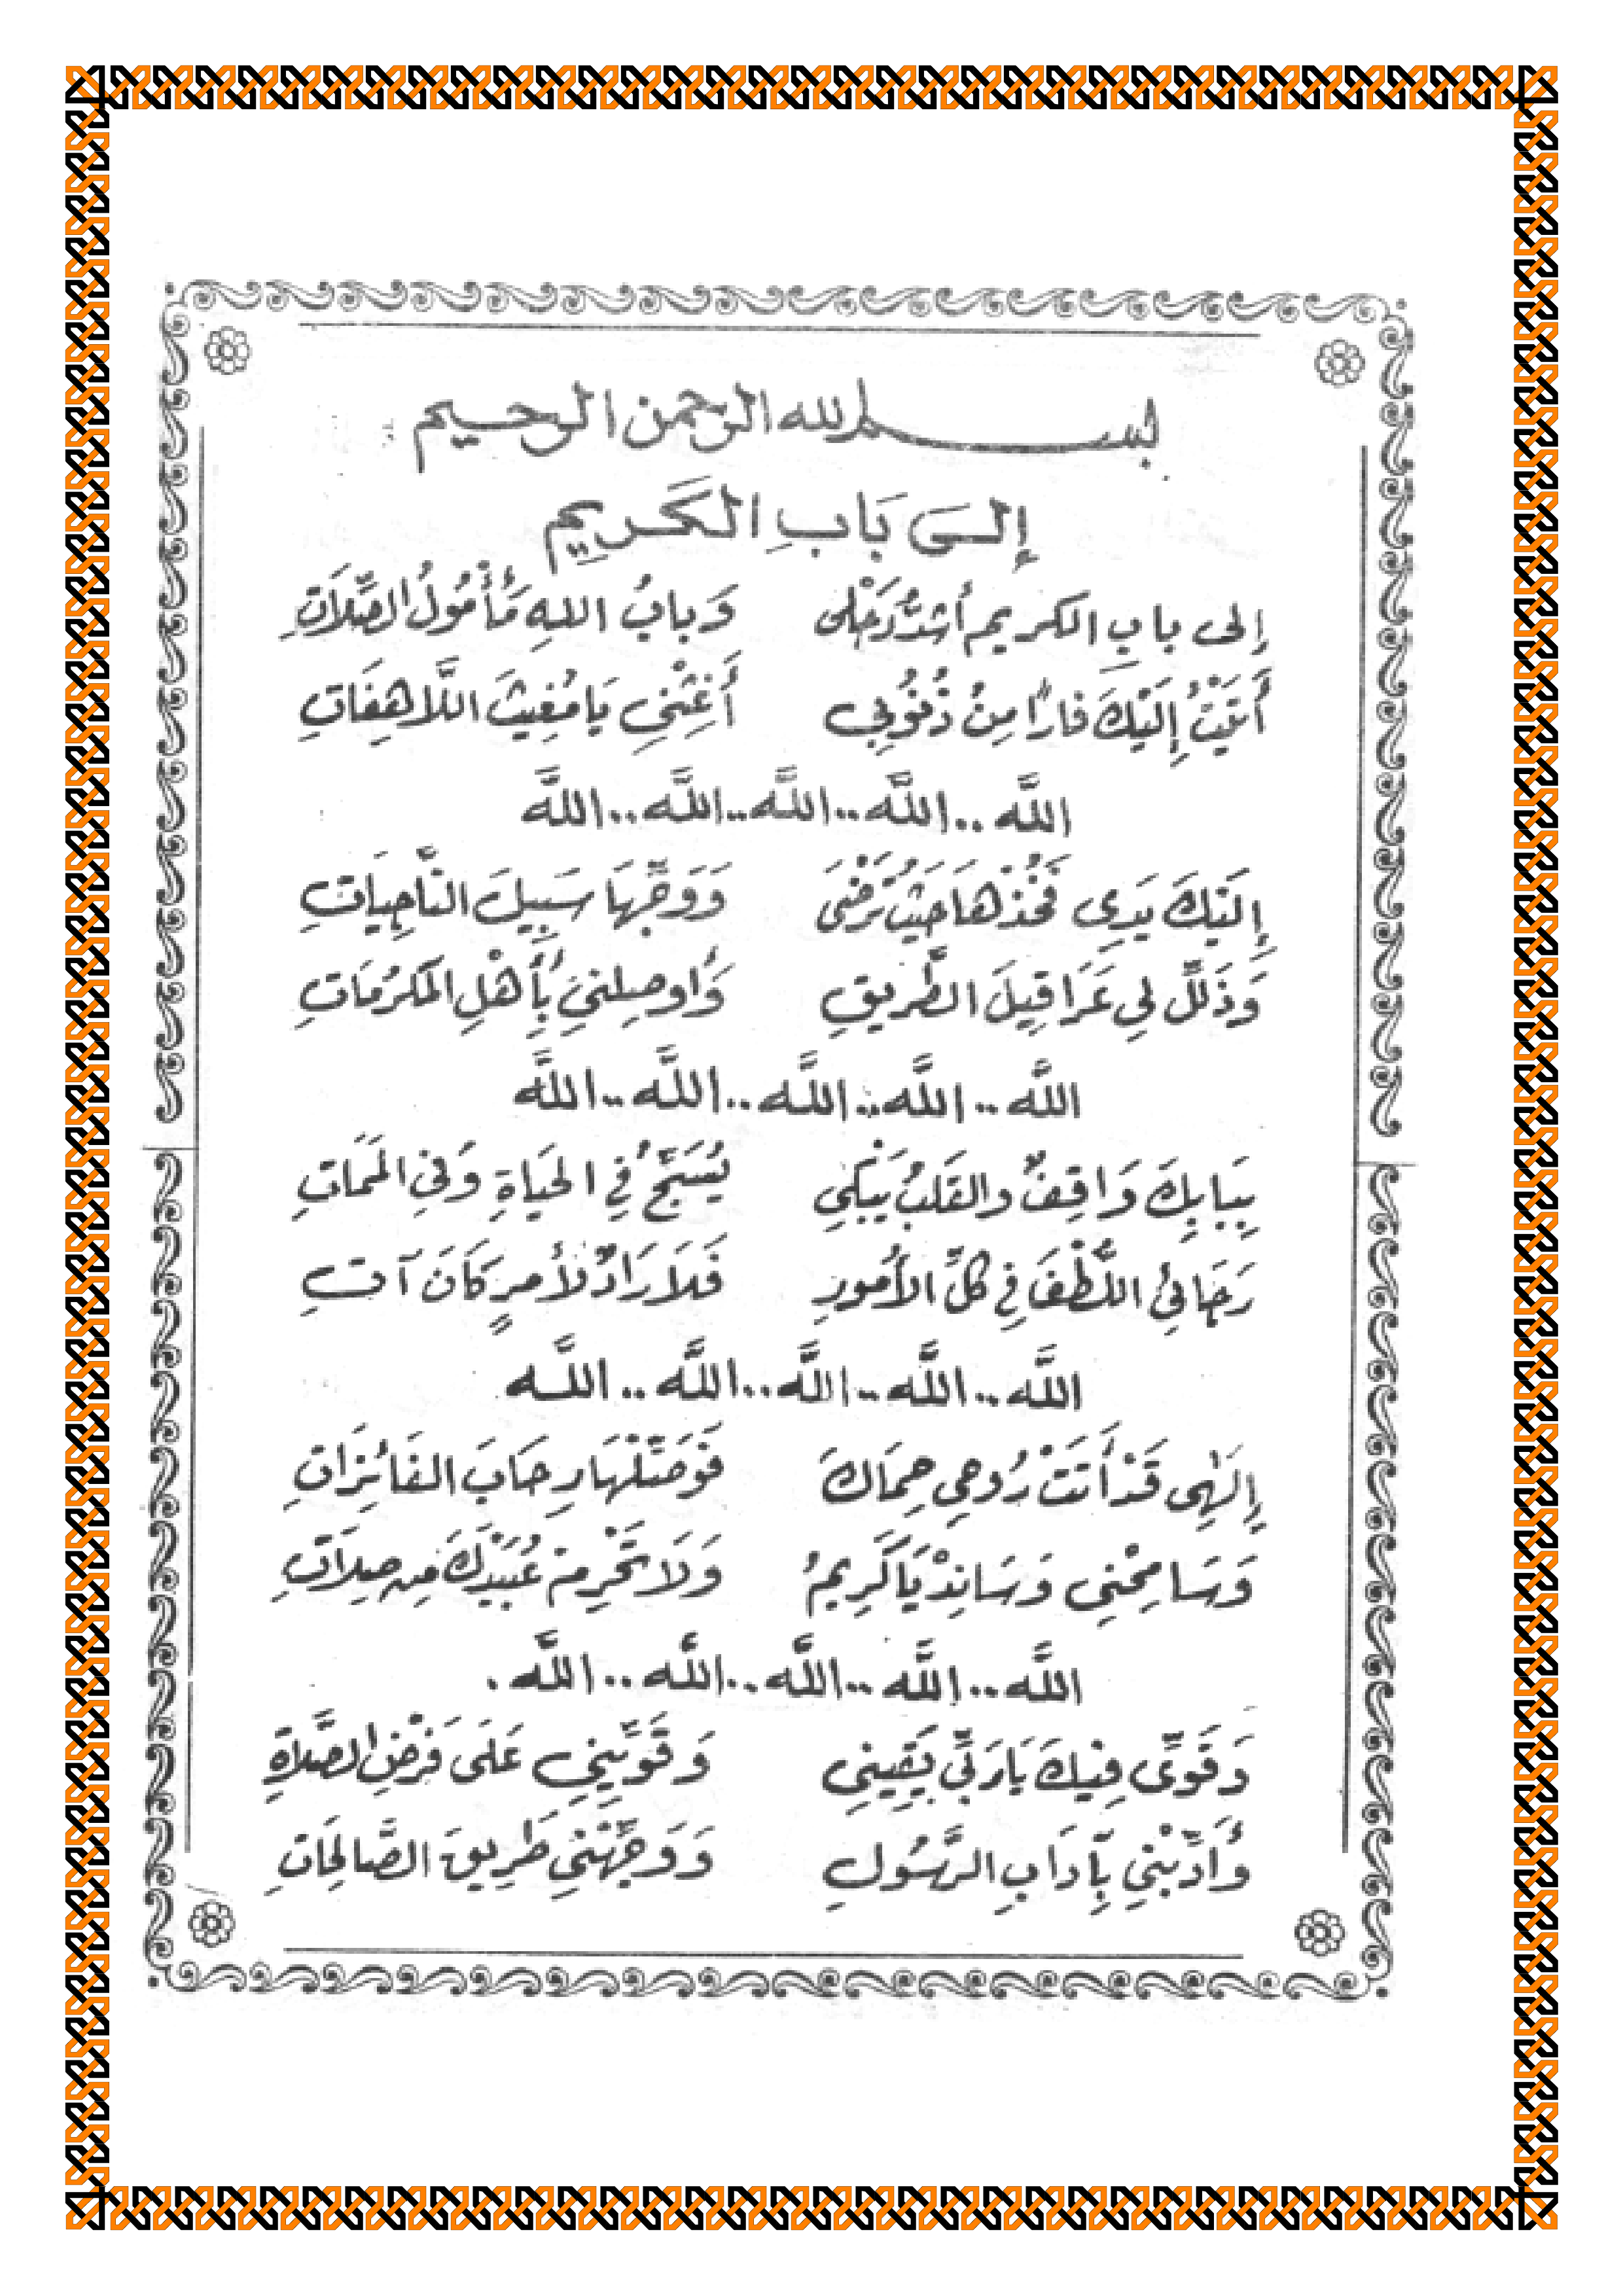 بسم الله الرحمن الرحيم
إلَى بَابِ الكَرِيمِ
إلى بابِ الكريم أشدُّ رَحْلى وَبابُ اللهِ مَأْمُولُ الصِّلَاتِ
أَتَيْتُ إِلَيْكَ فارًا مِنْ ذُنُوبِي أَغِثْنِي يَا مُغِيثَ اللَّاهِفَاتِ
اللَّه .. اللَّه .. اللَّه .. اللَّه .. اللَّه
إِلَيْكَ يَدِي فَخُذْهَا حَيْثُ تَرْضَى وَوَجِّهْهَا سَبِيلَ النَّاجِيَاتِ
وَذَلِّلْ لِي عَرَاقِيلَ الطَّرِيقِ وَأوصِلنِي بِأَهْلِ المَكرُمَاتِ
اللَّه .. اللَّه .. اللَّه .. اللَّه .. اللَّه
بِبَابِكَ وَاقِفٌ والقَلبُ يَبْكِي يُسَبِّحُ فِي الحَيَاةِ وَفِي المَمَاتِ
رَجَائِي اللُّطْفَ فِي كلِّ الأُمُورِ فَلَا رَادٌّ لأمرٍ كَانَ آتِ
اللَّه .. اللَّه .. اللَّه .. اللَّه .. اللَّه
إِلَهِى قَدْ أَتَتْ رُوحِي حِمَاكَ فَوَصِّلْهَا رِحَابَ الفَائِزَاتِ
وَسَامِحْنِي وَسَانِدْ يَا كَرِيمُ وَلَا تَحْرِمْ عُبَيْدَكَ مِن صِلَاتِ
اللَّه .. اللَّه .. اللَّه .. اللَّه .. اللَّه .
وَقَوِّى فِيكَ يَا رَبِّي يَقِينِى وَقَوِّينِي عَلَى فَرْضِ الصَّلَاةِ
وَأَدِّبْنِي بِآدَابِ الرَّسُولِ وَوَجِّهْنِي طَرِيقَ الصَّالِحَاتِ